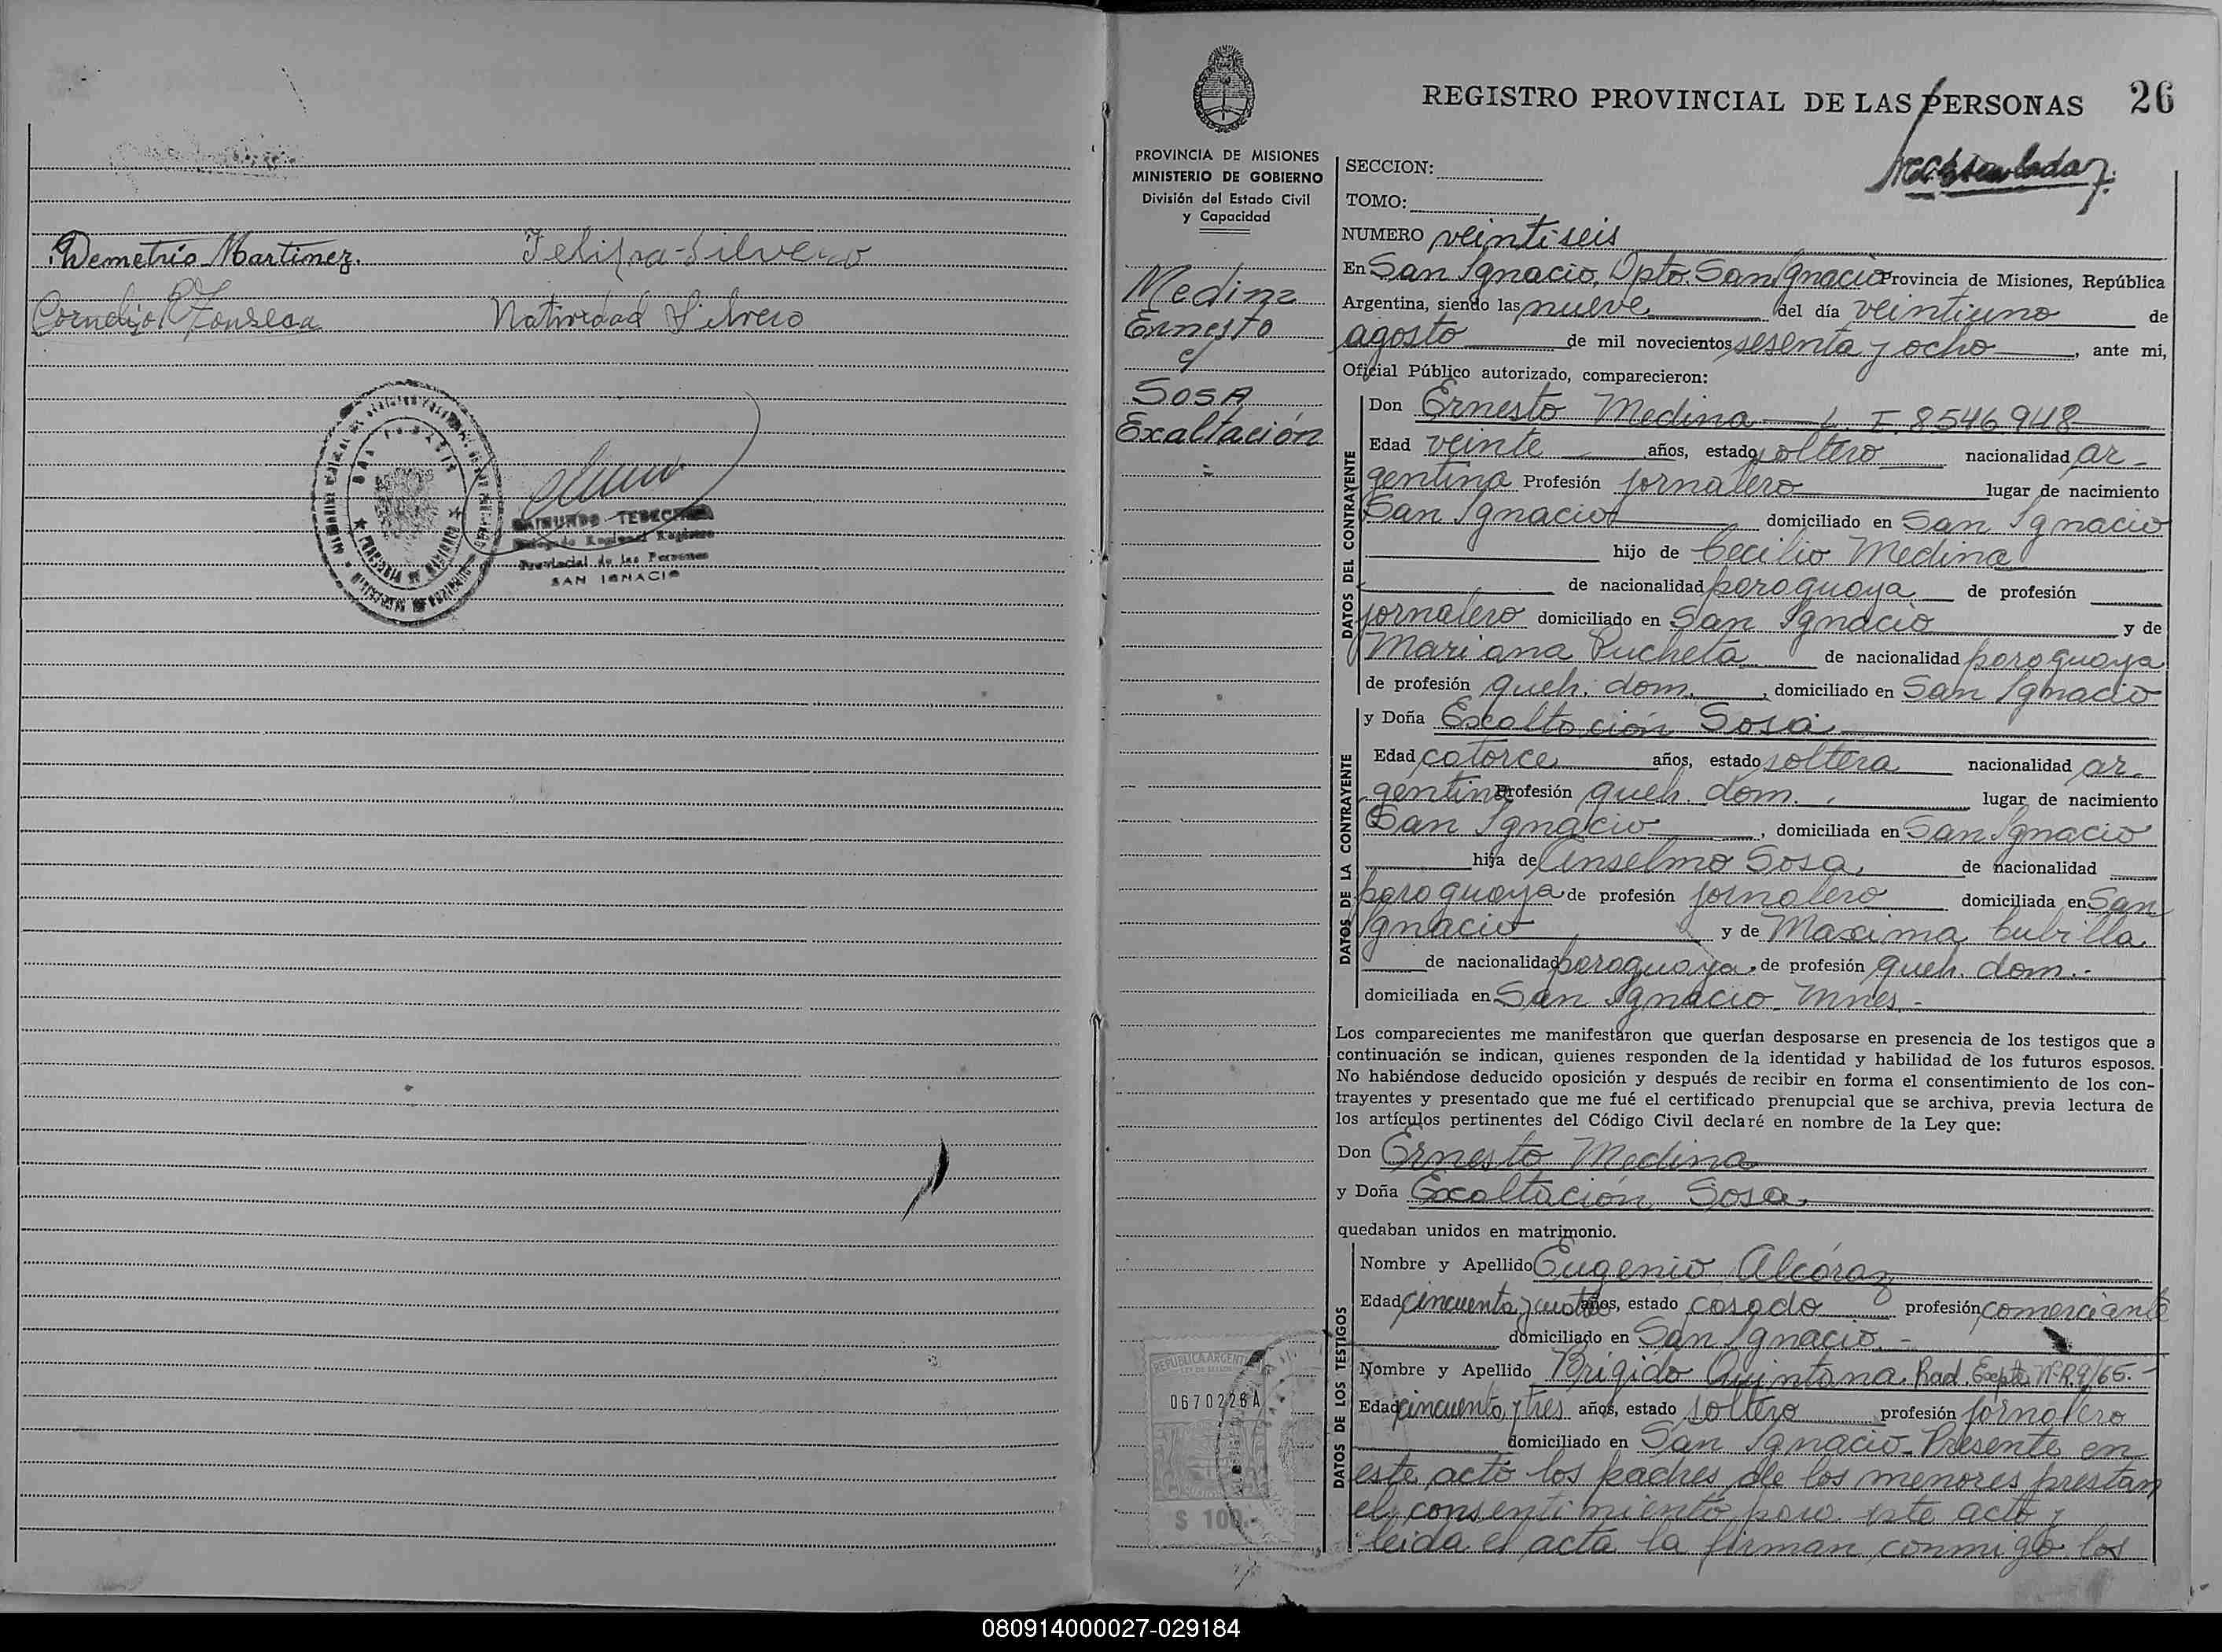 Demetrio Martinez. Felisa Silvero
Cornelio R Fonseca Natividad Silvero
RAIMUNDO TEBECH
Delegado Regional Registro
Provincial de las Personas
SAN IGNACIO
REGISTRO PROVINCIAL DE LAS PERSONAS 26
PROVINCIA DE MISIONES
MINISTERIO DE GOBIERNO
División del Estado Civil
y Capacidad
Medina
Ernesto
c/
Sosa
Exaltación
SECCION:
TOMO:
NUMERO veintiseis
En San Ignacio, Dpto. San Ignacio Provincia de Misiones, República
Argentina, siendo las nueve del día veintiuno de
agosto de mil novecientos sesenta y ocho, ante mi,
Oficial Público autorizado, comparecieron:
DATOS DEL CONTRAYENTE
Don Ernesto Medina L. E. 8546.948
Edad veinte años, estado soltero nacionalidad ar-
gentina Profesión jornalero lugar de nacimiento
San Ignacio domiciliado en San Ignacio
hijo de Cecilio Medina
de nacionalidad paraguaya de profesión
jornalero domiciliado en San Ignacio y de
Mariana Pucheta de nacionalidad paraguaya
de profesión queh. dom., domiciliado en San Ignacio
DATOS DE LA CONTRAYENTE
y Doña Exaltación Sosa
Edad catorce años, estado soltera nacionalidad ar-
gentina Profesión queh. dom. lugar de nacimiento
San Ignacio, domiciliada en San Ignacio
hija de Anselmo Sosa de nacionalidad
paraguaya de profesión jornalero domiciliada en San
Ignacio y de Maxima Cubilla
de nacionalidad paraguaya de profesión queh. dom.-
domiciliada en San Ignacio Mnes.-
Los comparecientes me manifestaron que querían desposarse en presencia de los testigos que a
continuación se indican, quienes responden de la identidad y habilidad de los futuros esposos.
No habiéndose deducido oposición y después de recibir en forma el consentimiento de los con-
trayentes y presentado que me fué el certificado prenupcial que se archiva, previa lectura de
los artículos pertinentes del Código Civil declaré en nombre de la Ley que:
Don Ernesto Medina
y Doña Exaltación Sosa
quedaban unidos en matrimonio.
DATOS DE LOS TESTIGOS
Nombre y Apellido Eugenio Alcóraz
Edad cincuenta y cuatro años, estado casado profesión comerciante
domiciliado en San Ignacio.-
Nombre y Apellido Brigido Quintana Rad. Expte Nº R9/65.-
Edad cincuenta y tres años, estado soltero profesión jornalero
domiciliado en San Ignacio. Presente en
este acto los padres de los menores prestan
el consentimiento para este acto y
leida el acta la firman conmigo los
REPUBLICA ARGENTINA
0670226A
$ 100.-
080914000027-029184